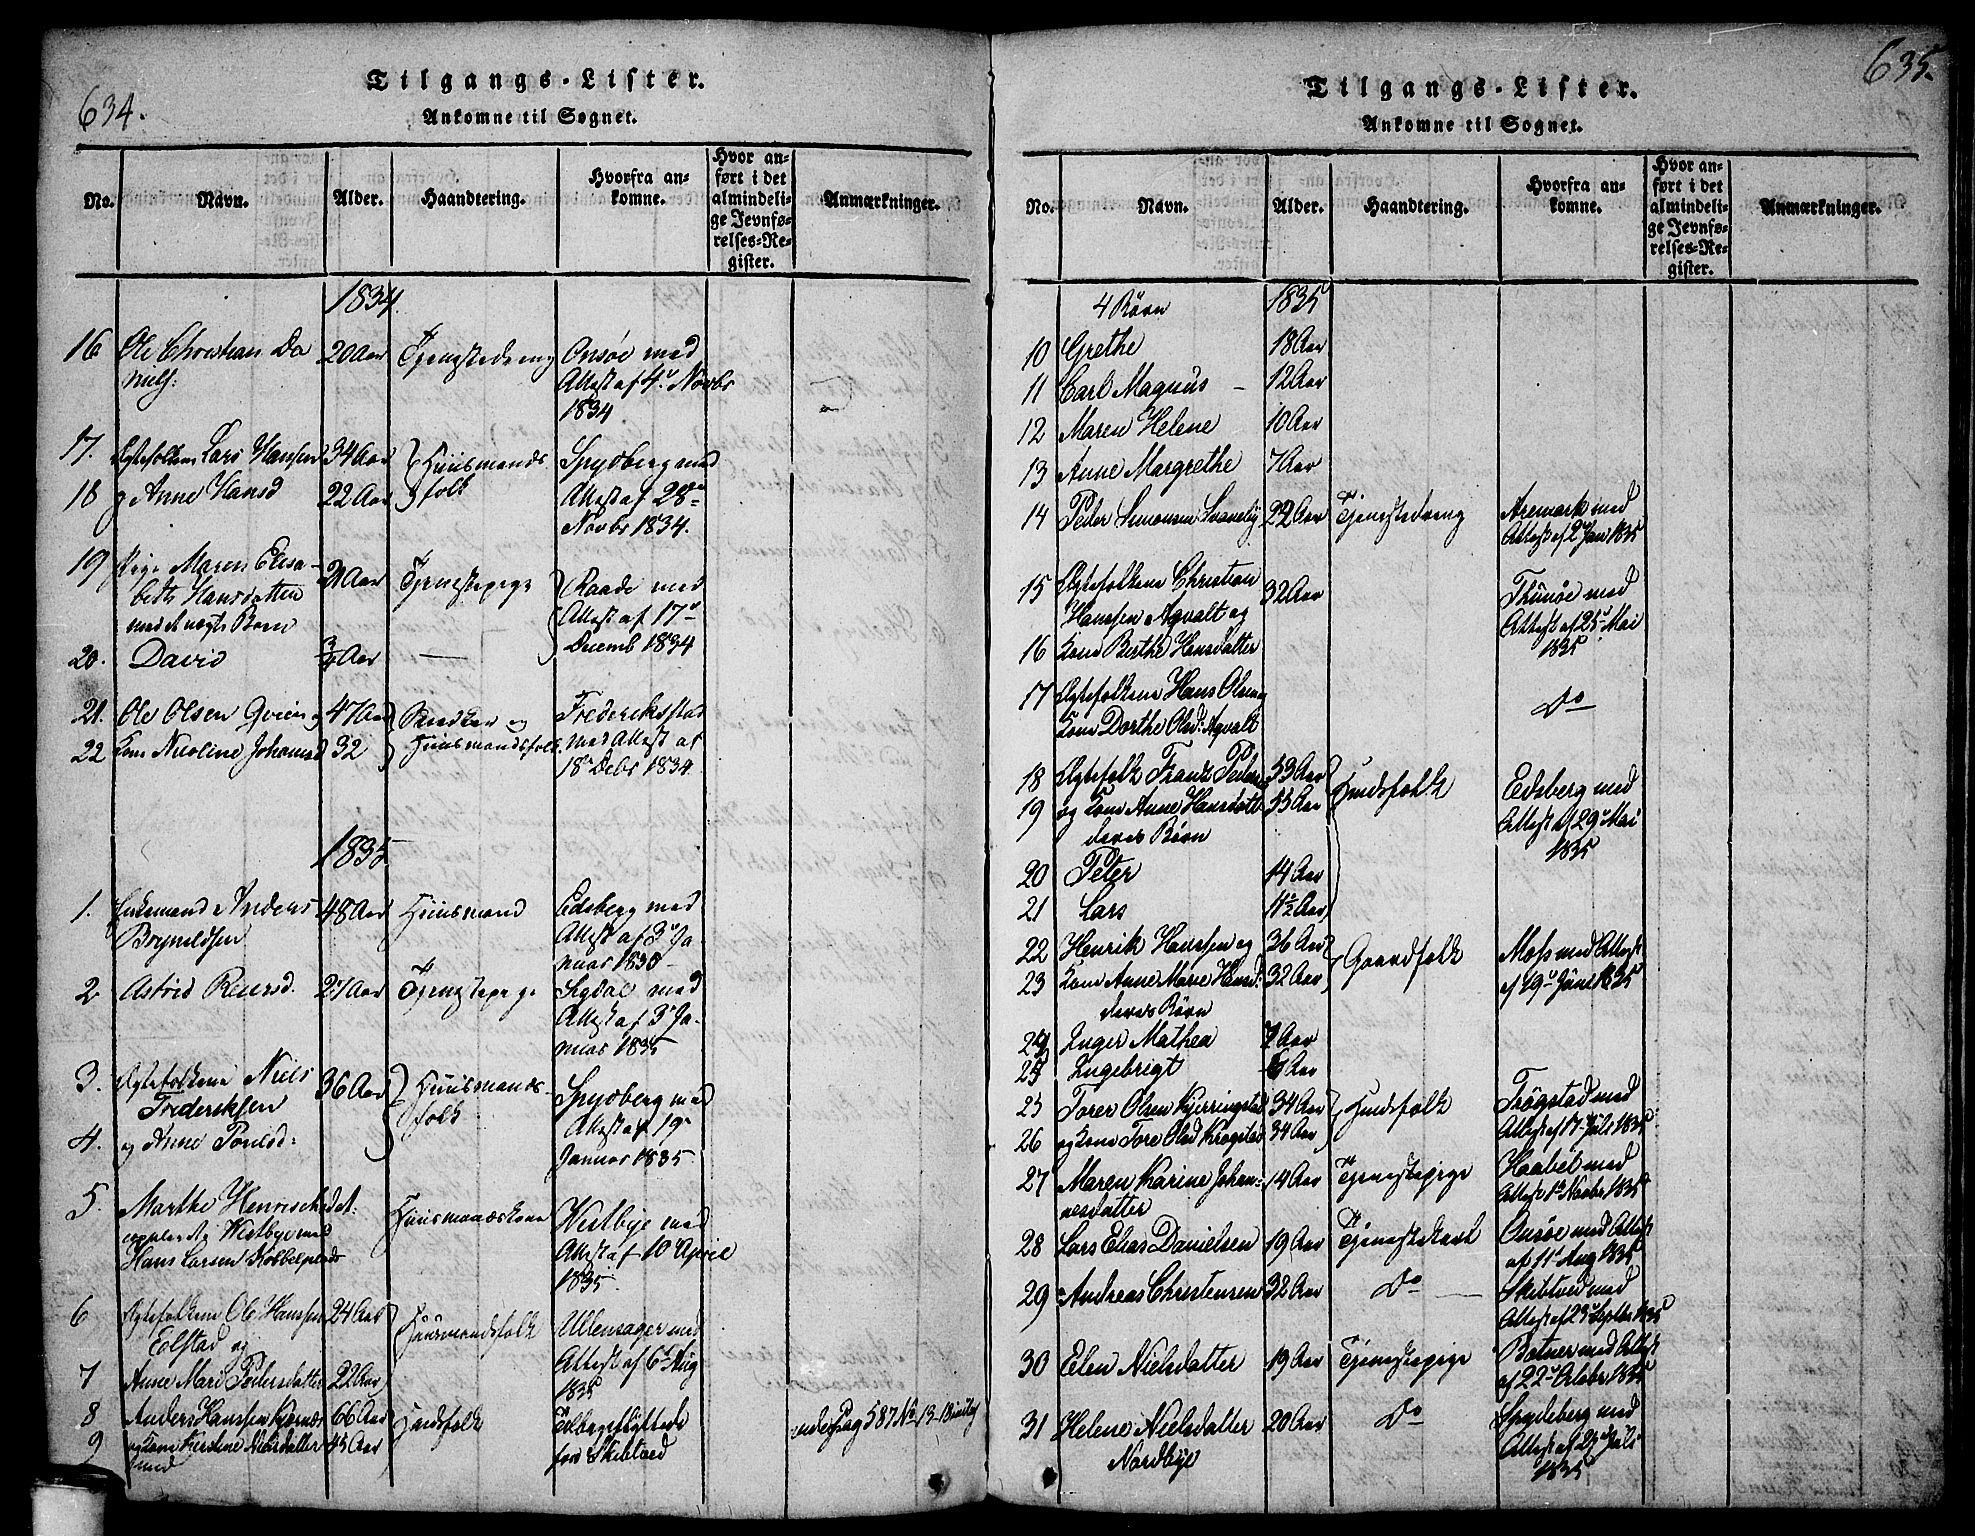 634.
Tilgangs-Lister.
Ankomne til Sognet.
No. Navn. Alder. Haandtering. Hvorfra ankomne. Hvor anført i det almindelige Jevnførelses-Register. Anmærkninger.
1834.
16 Ole Christian Da 20 Aar Tjenestedreng Onsøe med
niels: Attest af 4d Novbr
1834
17. Ægtefolkene Lars Hansen 34 Aar Huusmands Spydberg med
18 og Anne Hansd 22 Aar folk Attest af 28de
Novbr 1834.
19 Pige Maren Elisa- 21 Aar Tjenestepige Raade med
beth Hansdatter Attest af 17d
med et uægte Barn Decemb 1834
20. David 3/4 Aar
21. Ole Olsen og 47 Aar og Frederiksstad
22 Kone Nicoline Johannesd 32 Huusmandsfolk med Attest af
18d Debr 1834.
1835
1. Enkemand Anders 48 Aar Huusmand Edsberg med
Brynildsen Attest af 3d Ja-
nuar 1835
2 Astrid 27 Aar Tjenestepige Sigdal med
Attest af 3d Ja-
nuar 1835
3. Ægtefolkene Niels 36 Aar Huusmands- Spydberg med
Frederiksen folk Attest af 19d
4. og Anne Poulsd: Januar 1835.
5. Marthe Henrichsdat: Huusmandskone Westbye med
Westbye med Attest af 10d April
Hans Larsen 1835.
6 Ægtefolkene Ole Hanssen 24 Aar Huusmandsfolk Ullensager med
og Attest af 6d Aug
7 Anne Mari Pedersdatter 22 Aar 1835
8 Anders Hanssen 66 Aar Huusfolk Tilbageflyttede
9 og Kone Kirstine Nielsdatter 45 Aar fra Skibtved
under Pag 587 No 13-18
635.
Tilgangs-Lister.
Ankomne til Sognet.
No. Navn. Alder. Haandtering. Hvorfra ankomne. Hvor anført i det almindelige Jevnførelses-Register. Anmærkninger.
4 Børn 1835
10 Grethe 18 Aar
11 Carl Magnus - 12 Aar
12 Maren Helene 10 Aar
13 Anne Margrethe 7 Aar
14 Peder Simonsen 22 Aar Tjenestedreng Aremark med
Attest af 2d Juni 1835
15 Ægtefolkene Christian 32 Aar Thunøe med
Hanssen Agvalt og Attest af 25d Mai
16 Kone Berthe Hansdatter 1835
17 Ægtefolkene Hans Olsen og Do
Kone Dorthe Olsd: Agvalt
18 Ægtefolk Frantz Peders 53 Aar Huusfolk Edsberg med
19 og Kone Anne Hansdatt 55 Aar Attest af 29d Mai
deres Børn 1835
20 Peter 14 Aar
21 Lars 11½ Aar
22 Henrik Hanssen og 36 Aar Gaardfolk Moss med Attest
23 Kone Anne Marie Hansd: 32 Aar af 19d Juni 1835
deres Børn
24 Inger Mathea 7 Aar
25 Ingebrigt 6 Aar
25 Torer Olsen Kjerringstad 34 Aar Huusfolk Trøgstad med
26 og Kone Tore Olsd Krogstad 34 Aar Attest af 17 Juli 1835
27 Maren Karine Johan- 14 Aar Tjenestepige Haabøl med
nesdatter Attest 1d Novbr 1835
28 Lars Elias Danielsen 19 Aar Tjenestekarl Onsøe med Attest
af 11d Aug 1835
29 Andreas Christensen 32 Aar Do Skibtved med
Attest af 23d Septbr 1835
30 Elen Nielsdatter 19 Aar Tjenestepige Botner med Attest
af 22d October 1835
31 Helene Nielsdatter 20 Aar Do Spydeberg med
Nordbye Attest af 27 Juli
1835